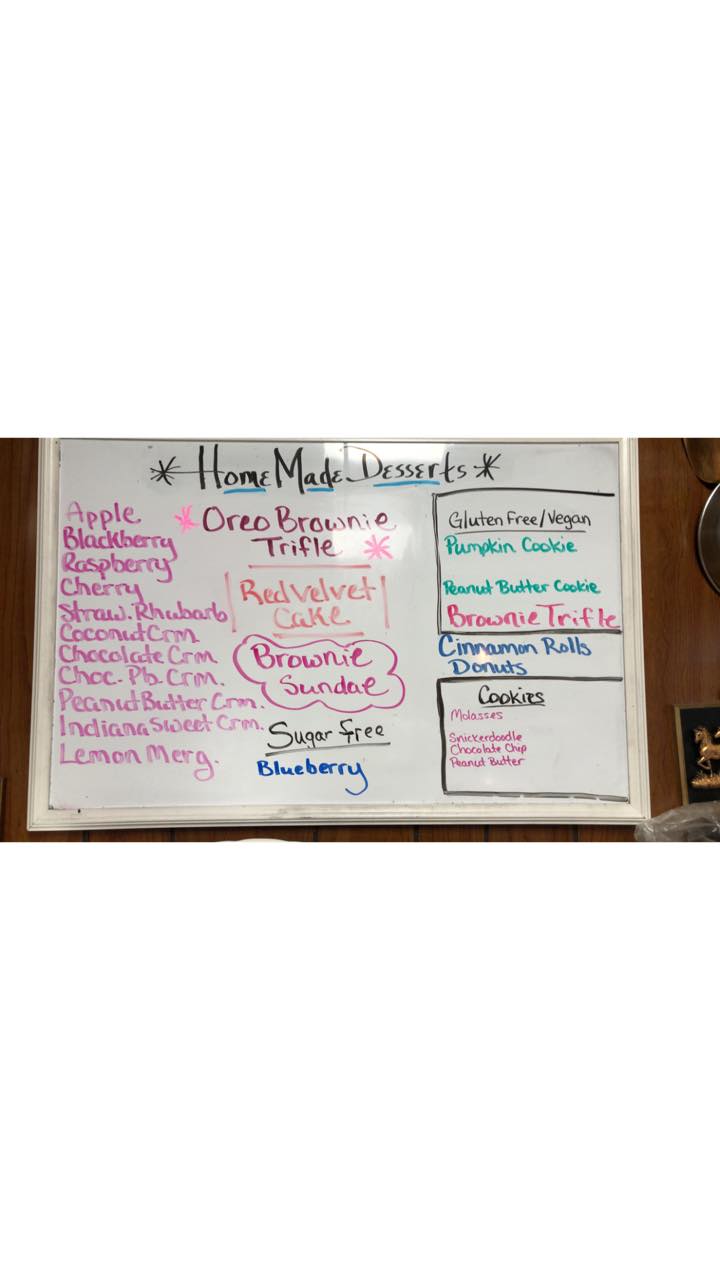 * Home Made Desserts *
Apple
Blackberry
Raspberry
Cherry
Straw. Rhubarb
Coconut Crm
Chocolate Crm
Choc. Pb. Crm.
Peanut Butter Crm.
Indiana Sweet Crm.
Lemon Merg.
* Oreo Brownie
Trifle *
Red Velvet
Cake
Brownie
Sundae
Sugar Free
Blueberry
Gluten Free/Vegan
Pumpkin Cookie
Peanut Butter Cookie
Brownie Trifle
Cinnamon Rolls
Donuts
Cookies
Molasses
Snickerdoodle
Chocolate Chip
Peanut Butter